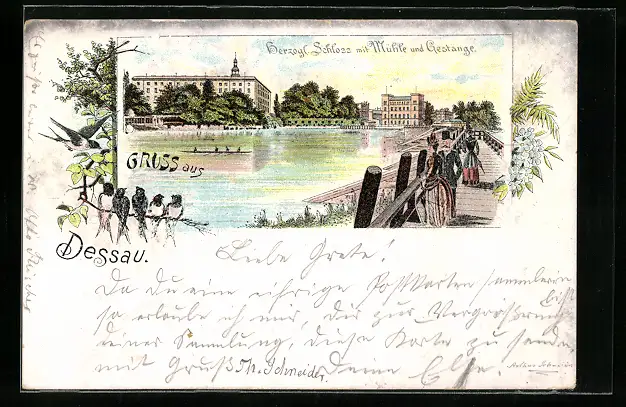 Herzogl. Schloss mit Mühle und Gestänge.
GRUSS aus
Dessau.
Liebe Grete!
Da Du eine eifrige Postkarten sammlerin bist
so erlaube ich mir, Dir zur Vergrößerung
deiner Sammlung, diese Karte zu senden
mit Gruß Th. Schneider. Deine Else.